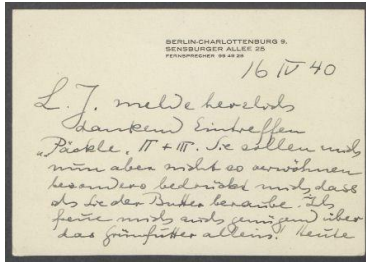 BERLIN-CHARLOTTENBURG 9,
SENSBURGER ALLEE 26
FERNSPRECHER 99 49 29
16 IV 40
L. J. melde herzlichs
dankend Eintreffen
„Päckle" II + III. Sie sollen mich
nun aber nicht so verwöhnen
besonders bedrückt mich dass
ich Sie der Butter beraube. Ich
freue mich auch genügend über
das Grünfutter allein. Heute